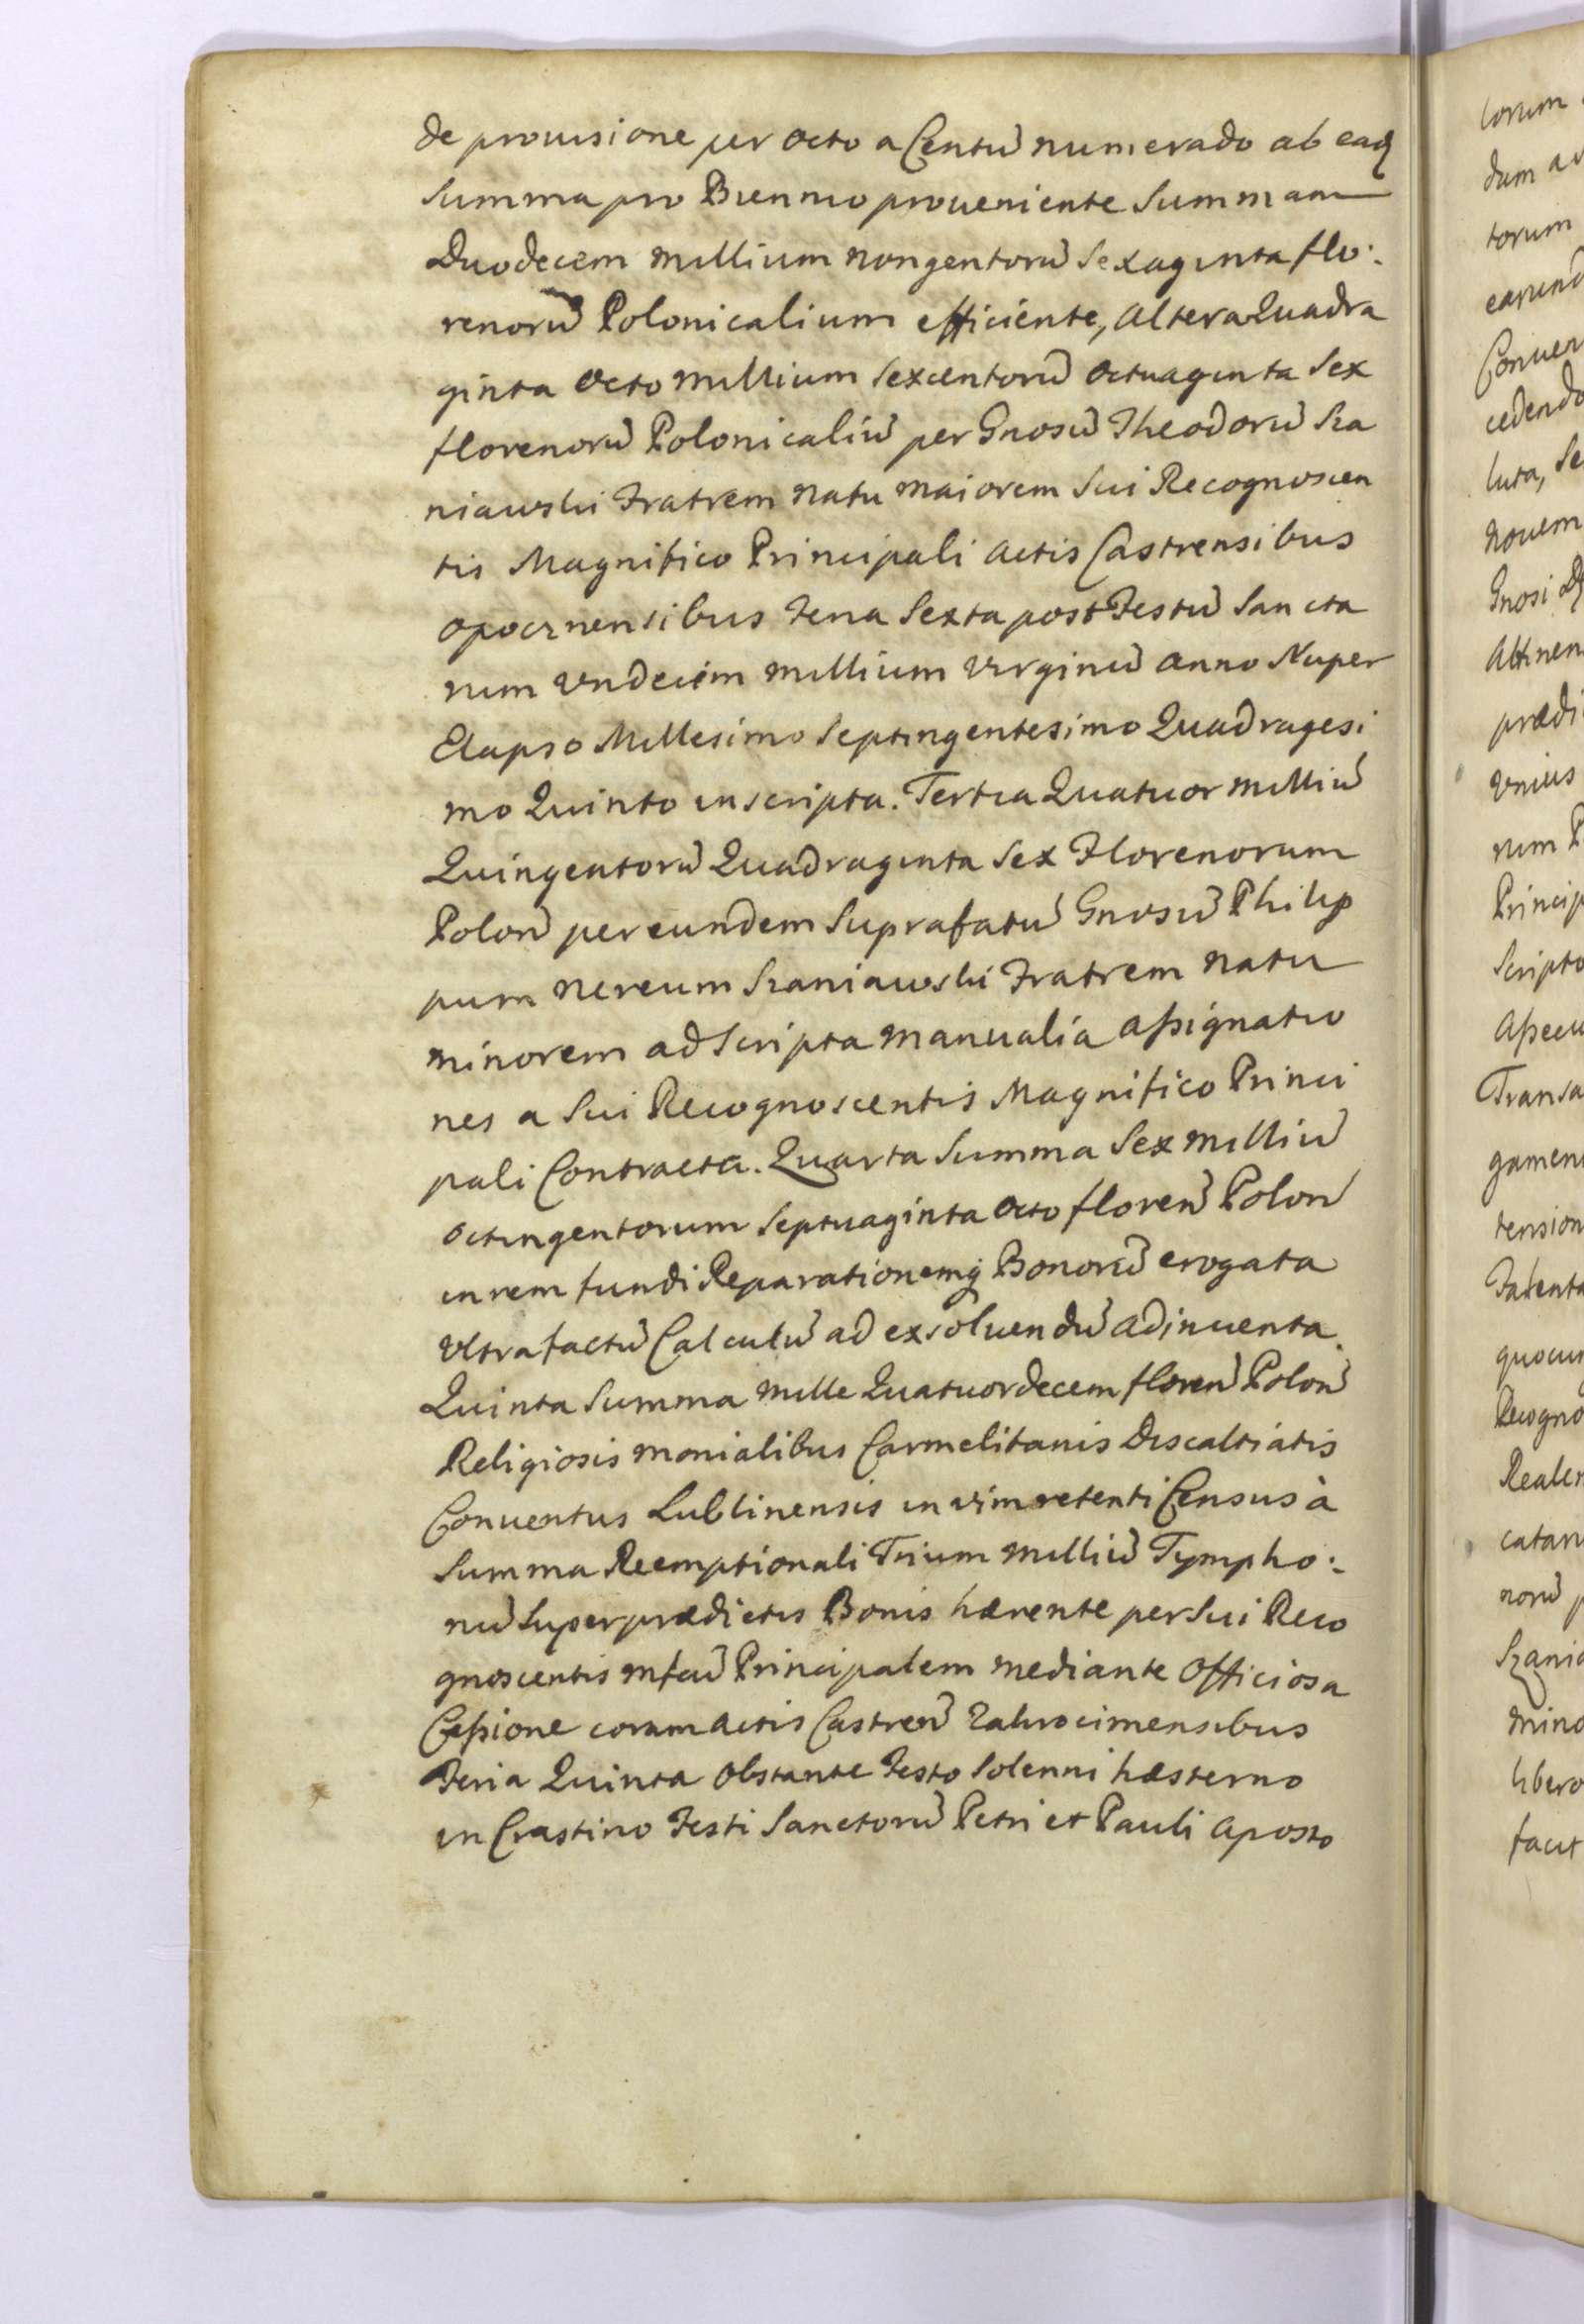 de prouisione per octo a Centũ numerado ab eadq
Summa pro Biennio proueniente Summam
Duodecem millium nongentorũ Sexaginta flo:
renorũ Polonicalium efficiente, altera Quadra
ginta octo millium Sexcentorũ octuaginta Sex
florenorũ Polonicaliũ per Gnosũ Theodorũ Sza
niawski Fratrem natu maiorem Sui Recognoscen
tis Magnifico Principali actis Castrensibus
opocznensibus Feria Sexta post Festũ Sancta
rum Vndecim millium Virginũ anno Nuper
Elapso Millesimo Septingentesimo Quadragesi
mo Quinto inscripta. Tertia Quatuor milliũ
Quingentorũ Quadraginta Sex Florenorum
Polon̄ per eundem Suprafatũ Gnosũ Philip
pum Nereum Szaniawski Fratrem natu
minorem ad Scripta manualia assignatio
nes a Sui Recognoscentis Magnifico Princi
pali Contracta. Quarta Summa Sex milliũ
octingentorum Septuaginta octo floren̄ Polon̄
in rem fundi Reparationemq Bonorũ erogata
Vltra factũ Calculũ ad exsoluendũ adinuenta.
Quinta Summa mille Quatuordecem floren̄ Polon̄
Religiosis monialibus Carmelitanis Discaltiatis
Conuentus Lublinensis in vim retenti Census à
Summa Reemptionali Trium milliũ Tympho:
nũ Super prædictis Bonis hærente per Sui Reco
gnoscentis mfcũ Principalem mediante officiosa
Cessione coram actis Castren̄ Zakrocimensibus
Feria Quinta obstante Festo Solenni hæsterno
in Crastino Festi Sanctorũ Petri et Pauli aposto
lorum
dum
torum
Conuen
cedendo
luta, Se
nouem
Gnosi
Attinen
prædi
Vnius
rum P
Princip
Scripto
Assecu
Transa
gamen
tension
quocun
Recogno
Realem
catam
norũ p
Szania
mino
libero
facit